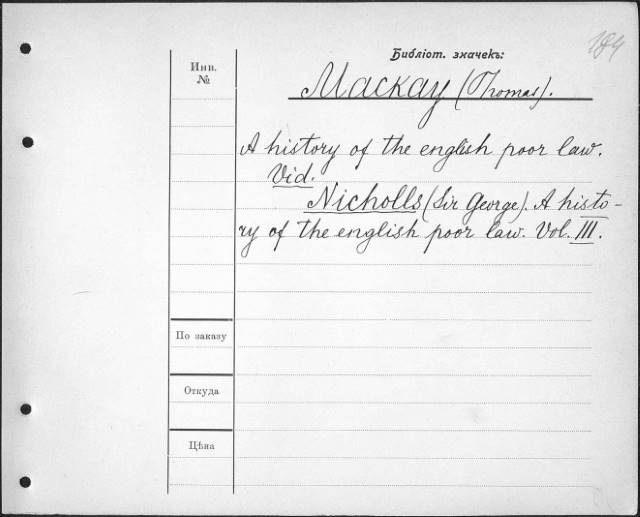 184
Библіот. значекъ:
Инв.
№
Mackay (Thomas).
A history of the english poor law.
Vid.
Nicholls (Sir George). A histo-
ry of the english poor law. Vol. III.
По заказу
Откуда
Цѣна